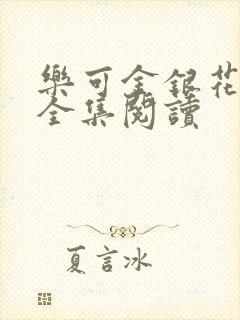 樂可金銀花
全集閱讀
夏言冰